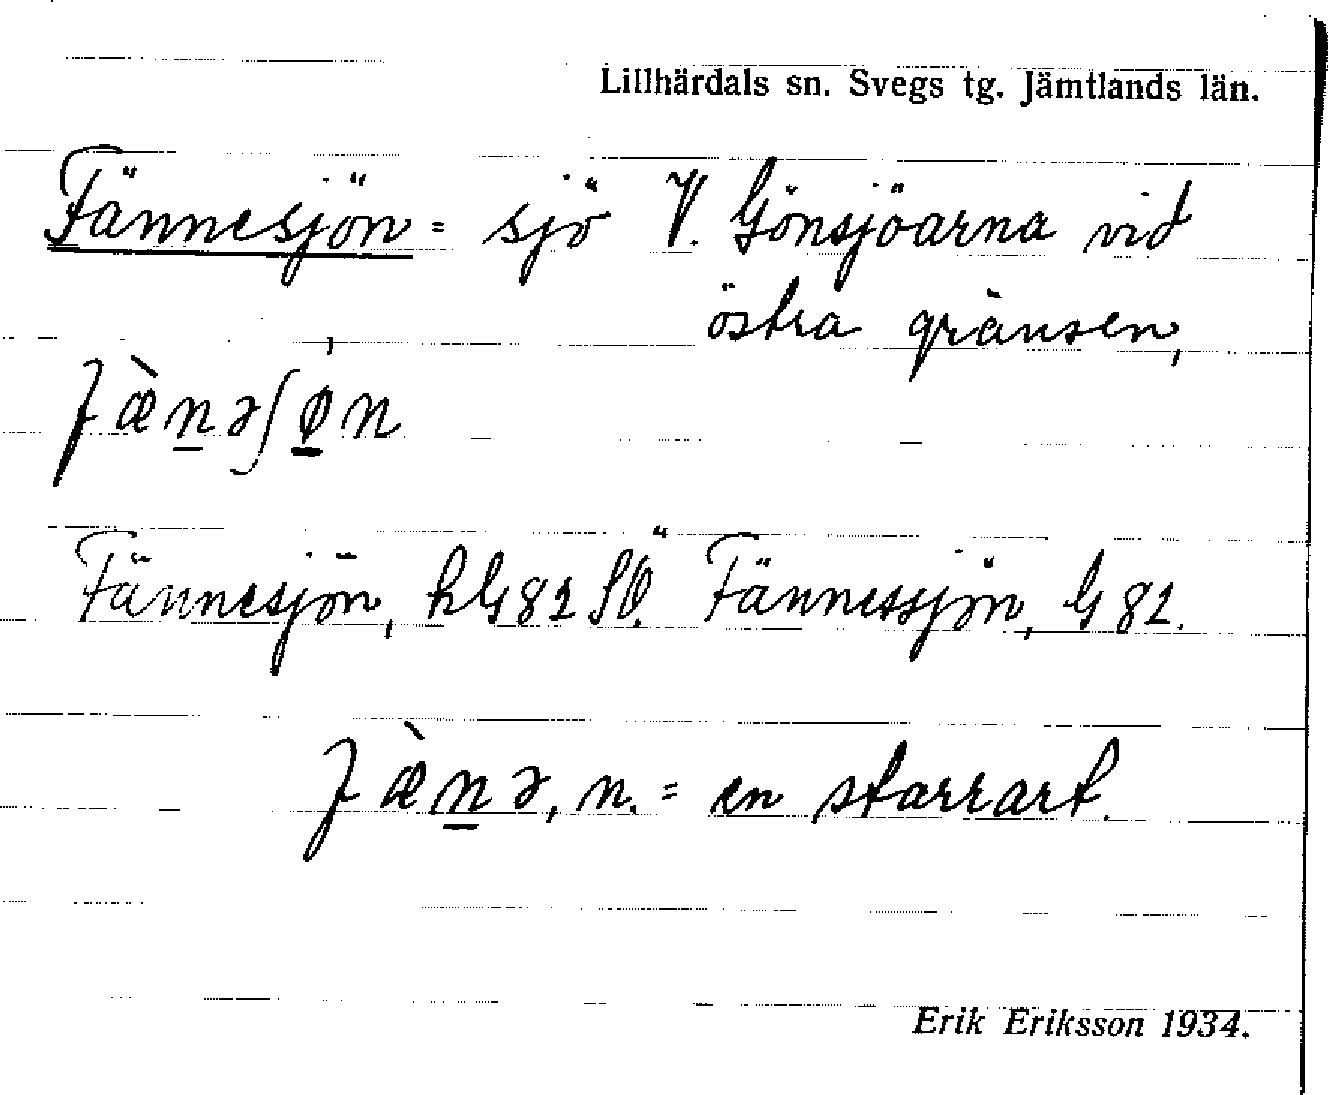 Lillhärdals sn. Svegs tg. Jämtlands län.
Fännesjön = sjö V. Gönsjöarna vid
östra gränsen,
fæ̀n̲əʃø̲n
Fännesjön, hG82 SV. Fännessjön, G 82.
fæ̀n̲ə, n. = en starrart.
Erik Eriksson 1934.